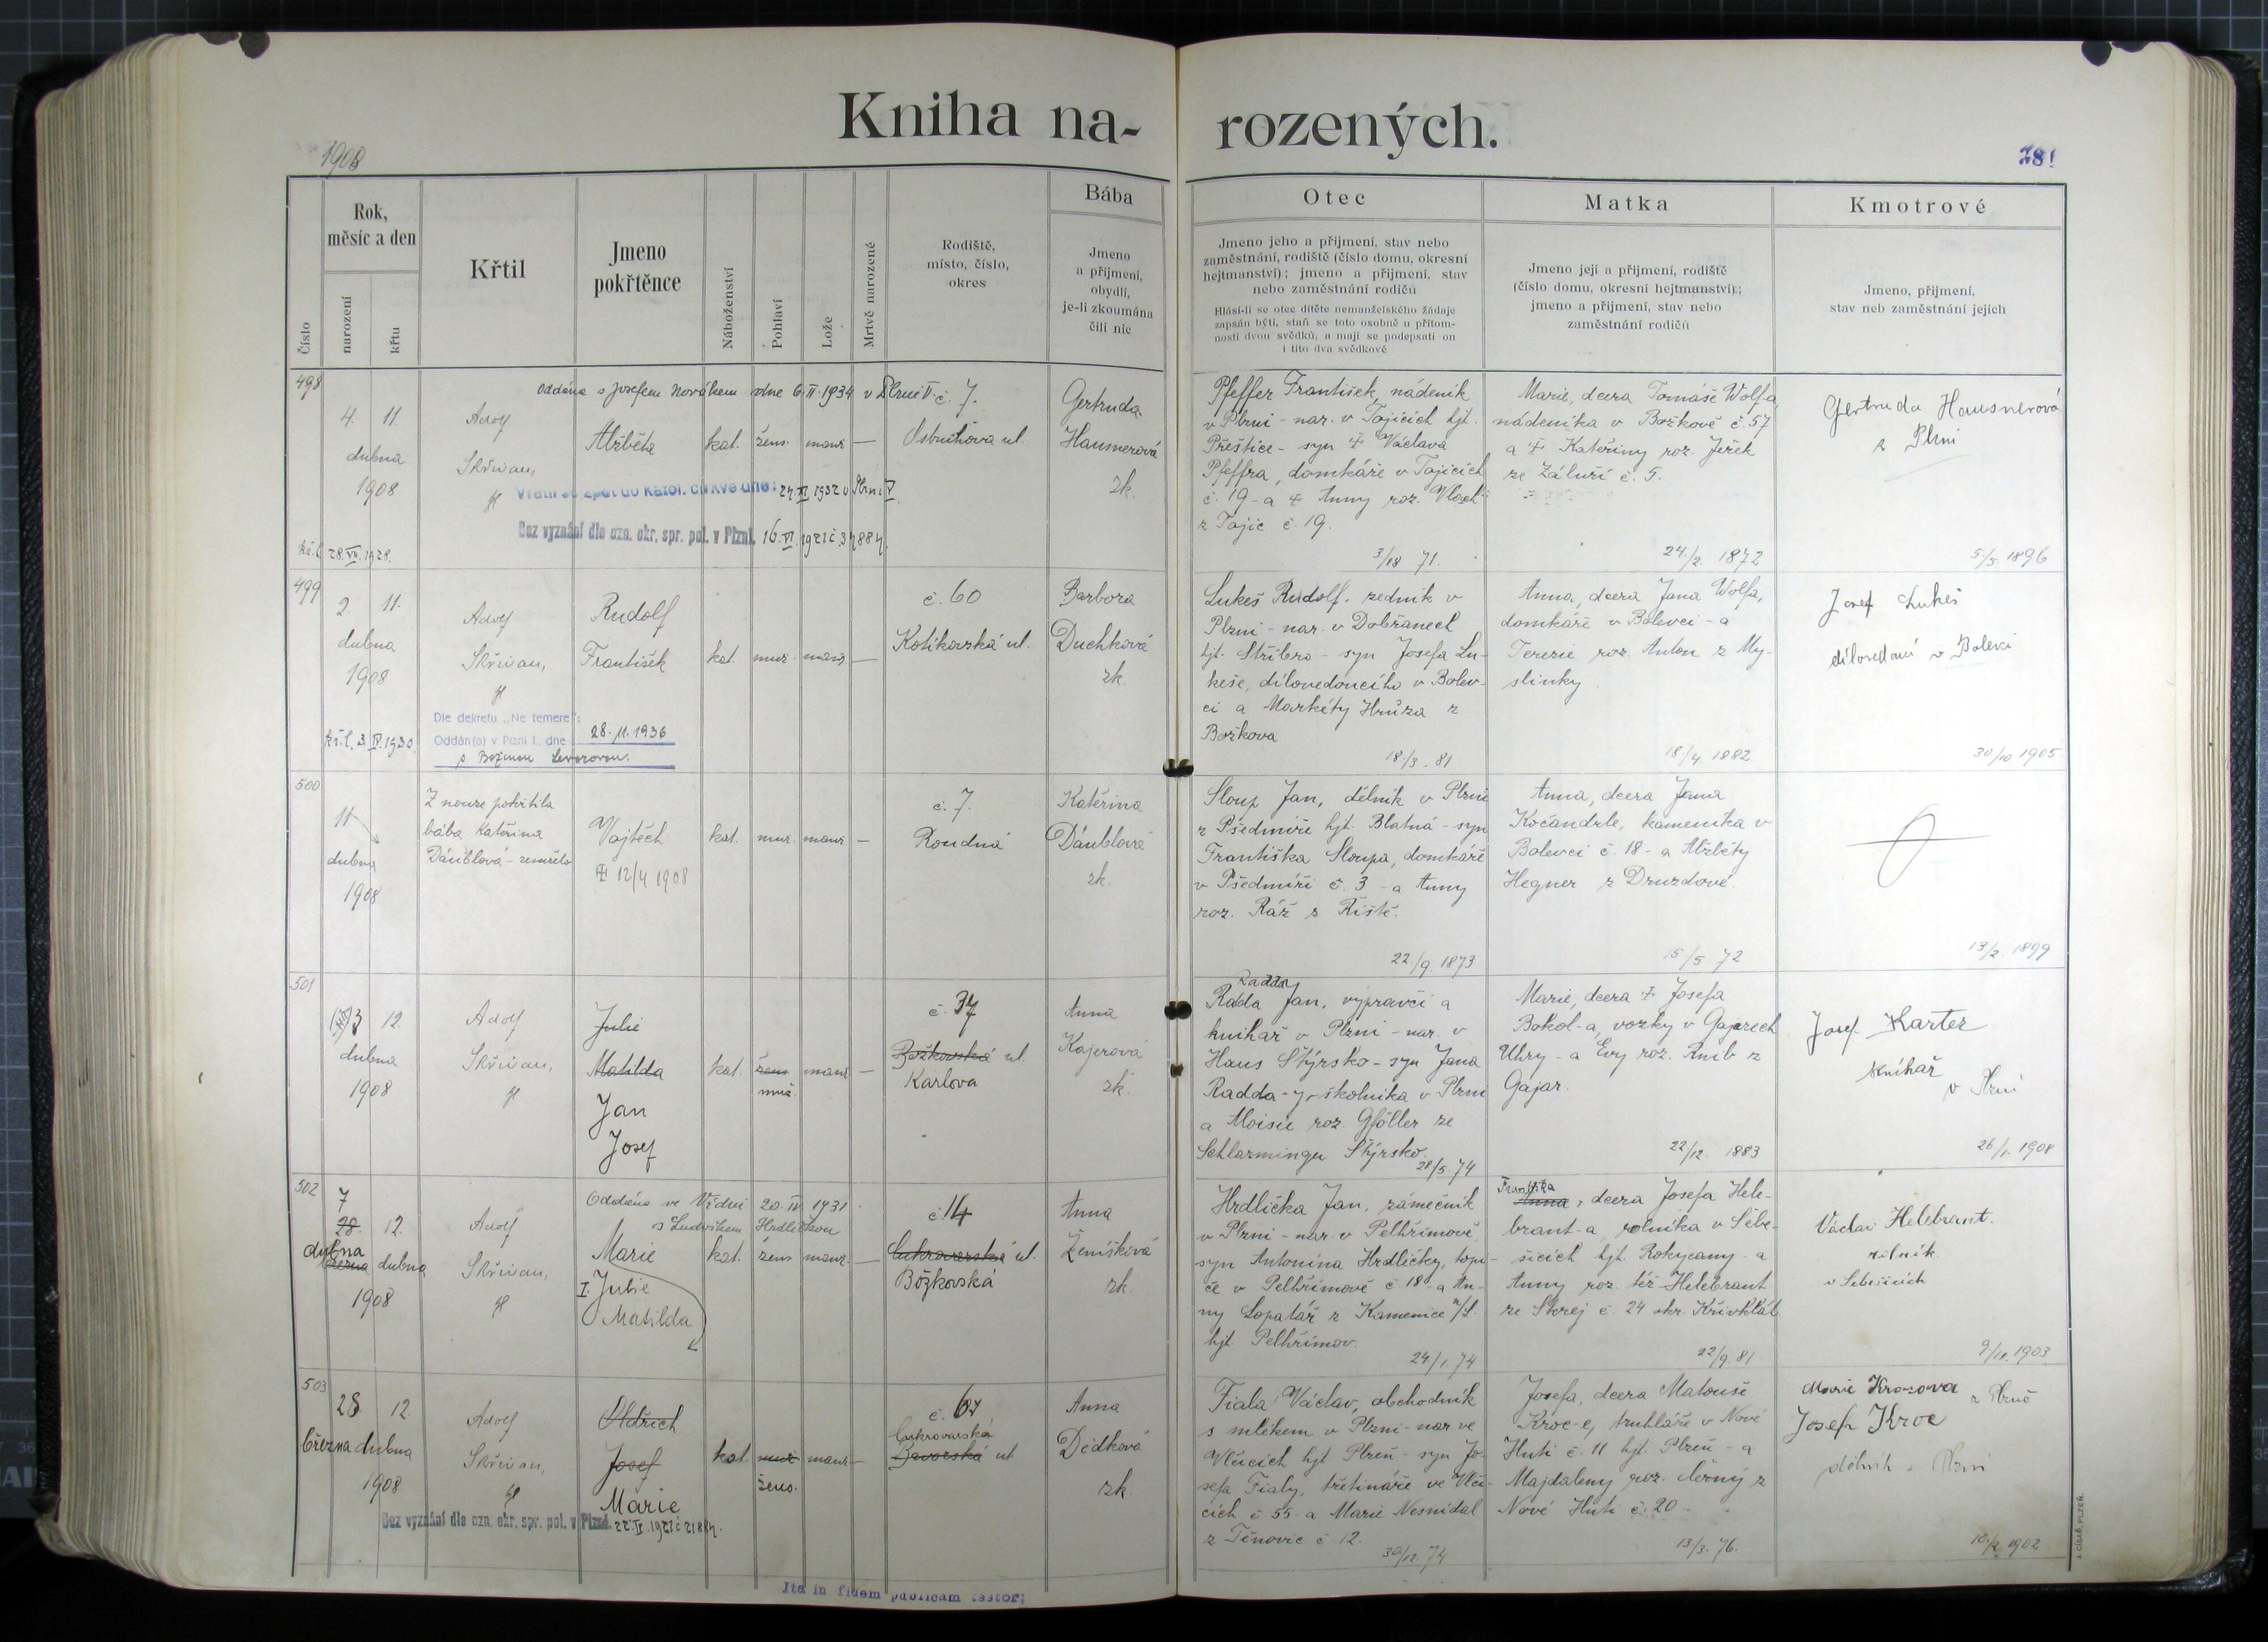 Kniha na-
rozených.
1908
281
Číslo
Rok,
měsíc a den
narození
křtu
Křtil
Jmeno
pokřtěnce
Náboženství
Pohlaví
Lože
Mrtvě narozené
Rodiště,
místo, číslo,
okres
Bába
Jmeno
a příjmení,
obydlí,
je-li zkoumána
čili nic
Otec
Jmeno jeho a příjmení, stav nebo
zaměstnání, rodiště (číslo domu, okresní
hejtmanství); jmeno a příjmení, stav
nebo zaměstnání rodičů
Hlásí-li se otec dítěte nemanželského žádaje
zapsán býti, staň se toto osobně u přítom-
nosti dvou svědků, a mají se podepsati on
i tito dva svědkové
Matka
Jmeno její a příjmení, rodiště
(číslo domu, okresní hejtmanství);
jmeno a příjmení, stav nebo
zaměstnání rodičů
Kmotrové
Jmeno, příjmení,
stav neb zaměstnání jejich
498
Oddána s Josefem Novákem dne 6.II.1934 v Plzni V.
4. 11.
dubna
1908
Adolf
Skřivan,
Alžběta
kat. žens. manž. —
č. 7.
ul.
Gertruda
Hausnerová
zk.
Vrátil se zpět do katol. církve dne: 24.XI 1932 v Plzni V.
Bez vyznání dle ozn. okr. spr. pol. v Plzni. 16.VI.1921 č. 37884.
kř. l. 28.VII.1928.
Pfeffer František, nádeník
v Plzni - nar. v Tojicích hjt.
Přeštice - syn † Václava
Pfeffra, domkáře v Tojicích
č. 19 - a † Anny roz. Vlach
z Tojic č. 19.
3/18 71.
Marie, dcera Tomáše Wolfa
nádeníka v Božkově č. 57
a † Kateřiny roz. Jeřek
ze Záluží č. 5.
24./2. 1872
Gertruda Hausnerová
z Plzni
5./5. 1896
499
2. 11.
dubna
1908
Adolf
Skřivan,
Rudolf
František
kat. muž. manž. —
č. 60
Kotíkovská ul.
Barbora
Duchková
zk.
kř. l. 3.IV.1930.
Dle dekretu „Ne temere":
Oddán(a) v Plzni I., dne 28.11.1936
s Boženou
Lukeš Rudolf, zedník v
Plzni - nar. v Dobřanech
hjt. Stříbro - syn Josefa Lu-
keše, dílovedoucího v Bolev-
ci a Markéty Hrůza z
Božkova
18./3. 81
Anna, dcera Jana Wolfa,
domkáře v Bolevci - a
Terezie roz. Anton z My-
slinky.
18./4 1882
Josef Lukeš
dílovedoucí v Bolevci
30/10 1905
500
11
dubna
1908
Z nouze pokřtila
bába Kateřina
Däublová - zemřelo
Vojtěch
† 12/4 1908
kat. muž. manž. —
č. 7.
Roudná
Kateřina
Däublová
zk.
Sloup Jan, dělník v Plzni
z Předmíře hjt. Blatná - syn
Františka Sloupa, domkáře
v Předmíři č. 3 - a Anny
roz. Ráž z Řiště.
22./9. 1873
Anna, dcera Jana
Kočandrle, kameníka v
Bolevci č. 18 - a Alžběty
Hegner z Druzdové.
15/5 72
13/2. 1899
501
3 12.
dubna
1908
Adolf
Skřivan,
Julie
Matilda
Jan
Josef
kat. žens manž —
muž.
č. 37
Božkovská ul.
Karlova
Anna
Kajerová
zk.
Radda
Radda Jan, výpravčí a
knihař v Plzni - nar. v
Haus Štýrsko - syn Jana
Radda - y, školníka v Plzni
a Aloisie roz. Gföller ze
Schlarmingu Štýrsko.
28/5. 74
Marie, dcera † Josefa
Bokol-a, vozky v Gajarech
Uhry - a Evy roz. Rnib z
Gajar.
22/12. 1883
Josef Karter
knihař
v Plzni
26/1. 1908
502
7
28. 12.
dubna
března dubna
1908
Adolf
Skřivan,
Oddána ve Vídni 20.IV.1931
s Ludvíkem Hrdličkou
Marie
I. Julie
Matilda
kat. žens manž. —
č. 14
Cukrovarská ul.
Božkovská
Anna
Ženíšková
zk.
Hrdlička Jan, zámečník
v Plzni - nar. v Pelhřimově,
syn Antonína Hrdličky, topi-
če v Pelhřimově č. 18 - a An-
ny Lopatář z Kamenice n/L.
hjt. Pelhřimov.
24/1. 74
Františka
Anna, dcera Josefa Hele-
brant-a, rolníka v Sebe-
šicích hjt. Rokycany - a
Anny roz. též Helebrant
ze Skrej č. 24 okr. Křivoklát
22/9. 81
Václav Helebrant.
rolník
v Sebešicích
9/11. 1903
503
28 12.
března dubna
1908
Adolf
Skřivan,
Oldřich
Josef
Marie
kat. muž manž —
žens.
č. 67
Cukrovarská
Bavorská ul
Anna
Dědková
zk.
Bez vyznání dle ozn. okr. spr. pol. v Plzni. 22.IV.1921 č. 21884.
Fiala Václav, obchodník
s mlékem v Plzni - nar ve
Vlčicích hjt Plzeň - syn Jo-
sefa Fialy, třetináře ve Vlči-
cích č. 55 a Marie Nesnídal
z Těnovic č. 12.
30/12. 74
Josefa, dcera Matouše
Kroc-e, truhláře v Nové
Huti č. 11 hjt. Plzeň - a
Majdaleny roz. Černý z
Nové Huti č. 20 -
13/3. 76.
Marie Krocova z Plzně
Josef Kroc
dělník v Plzni
10/2. 1902
Ita in fidem publicam testor;
J. CÍSAŘ, PLZEŇ.